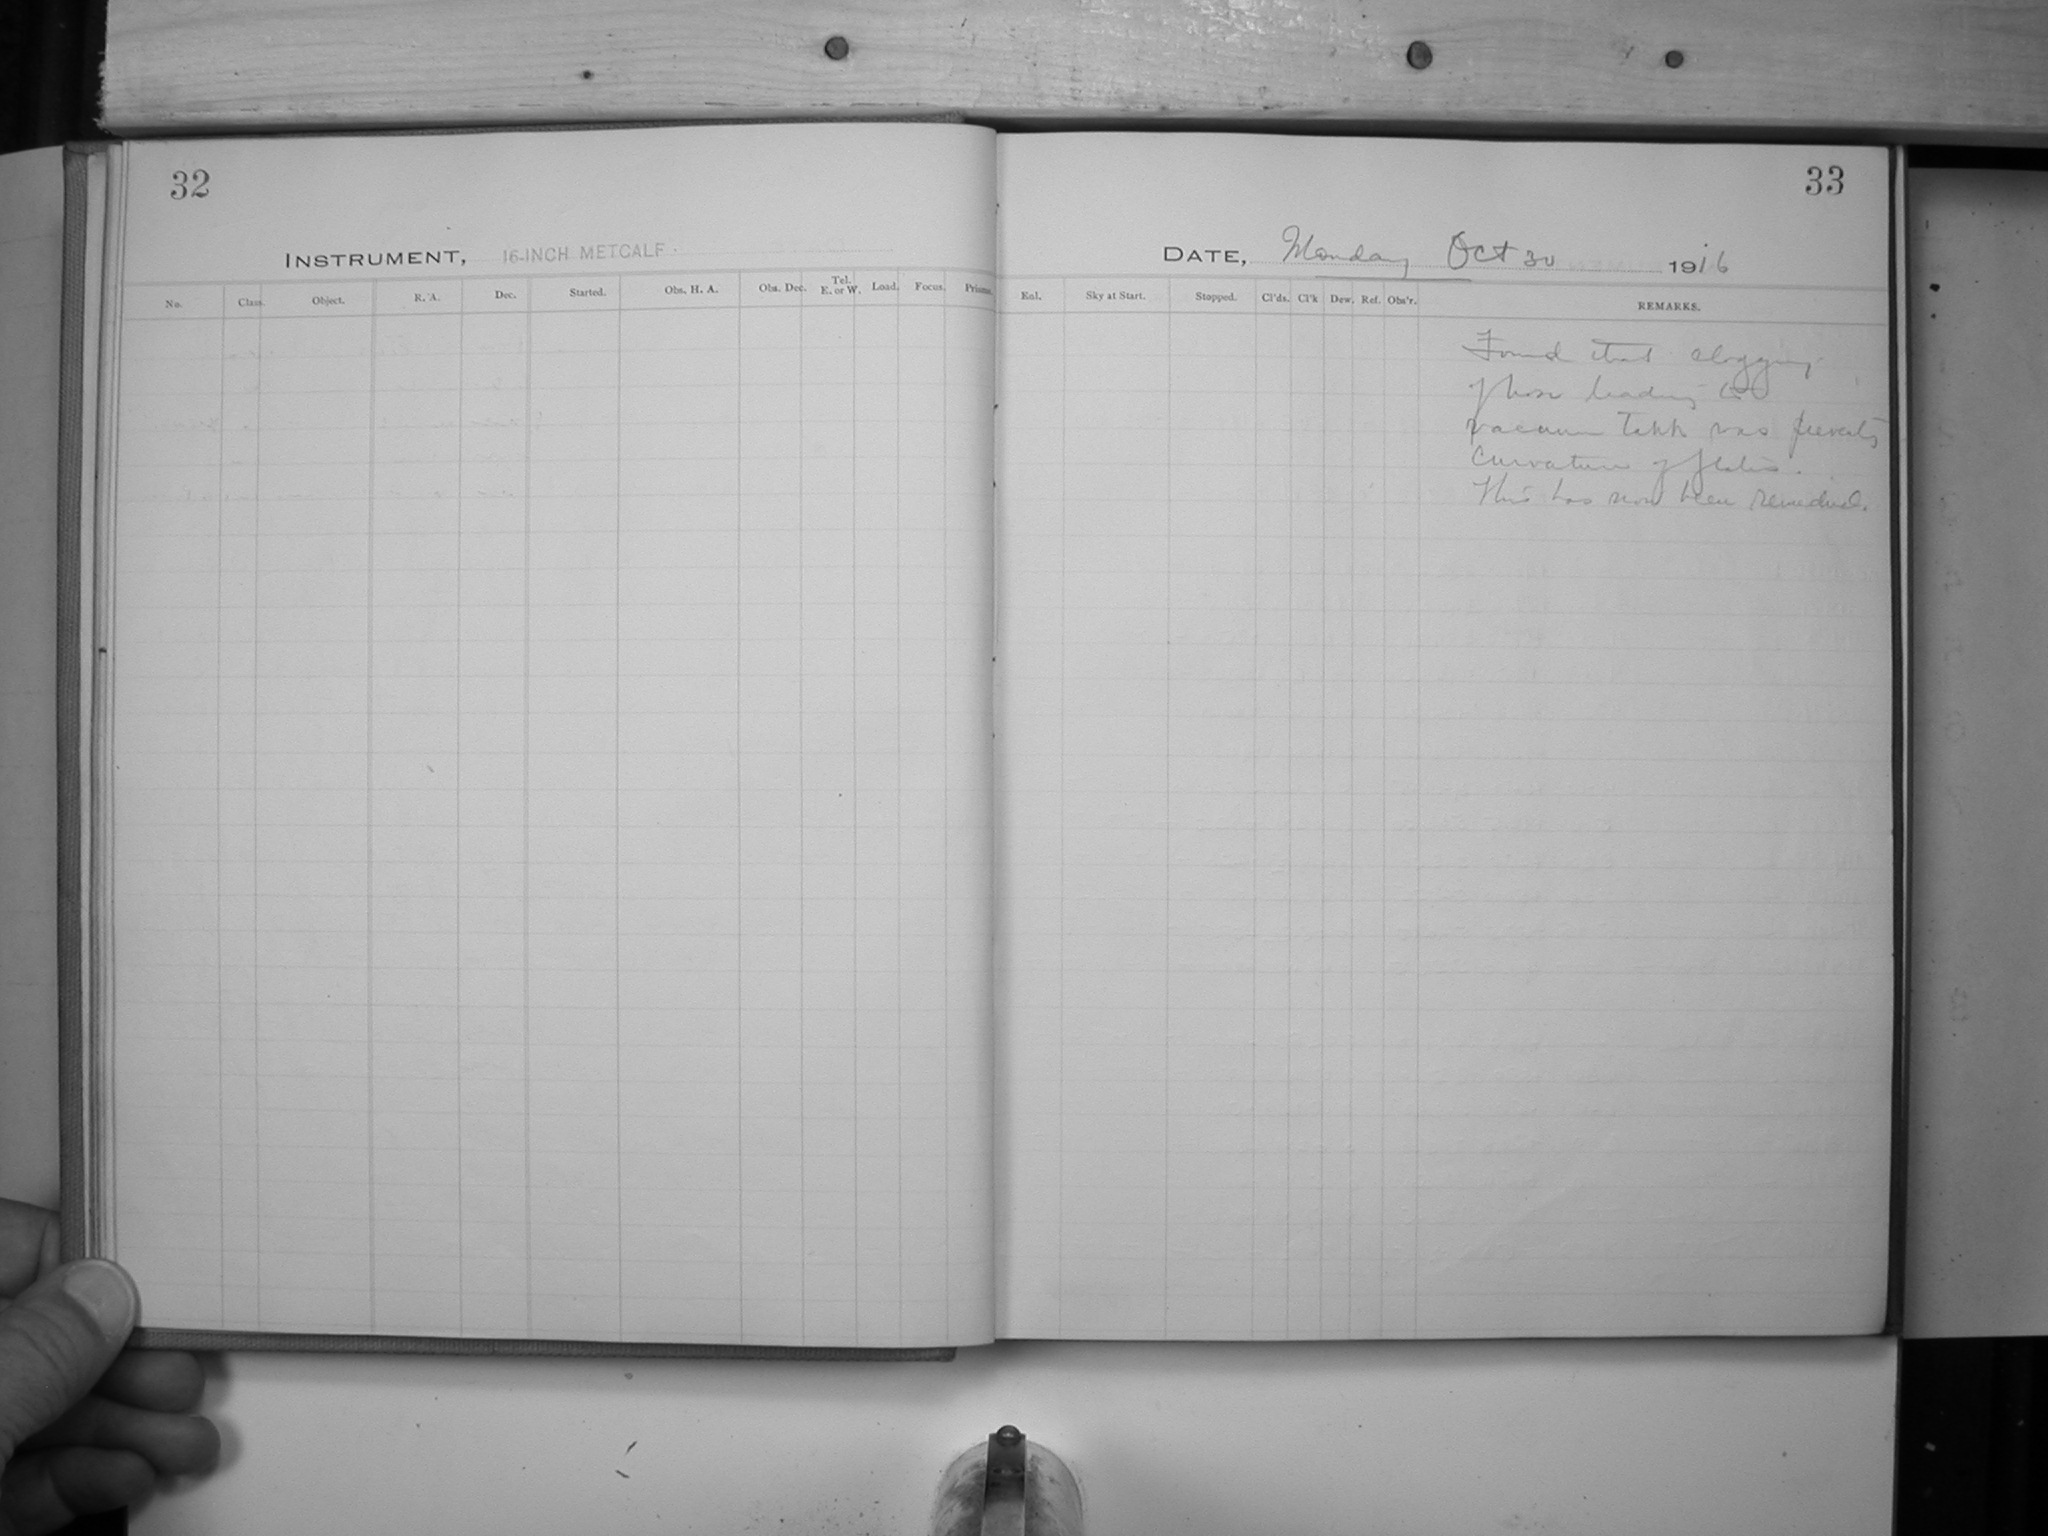 32
INSTRUMENT, 16-INCH METCALF
No. Class. Object. R. A. Dec. Started. Obs. H. A. Obs. Dec. Tel. E. or W. Load. Focus. Prisms.
33
DATE, Monday Oct 30 1916
Eol. Sky at Start. Stopped. Cl'ds. Cl'k Dew. Ref. Obs'r. REMARKS.
Found that clogging
of hose leading to
vacuum tank was
curvature of plates.
This has now been remedied.